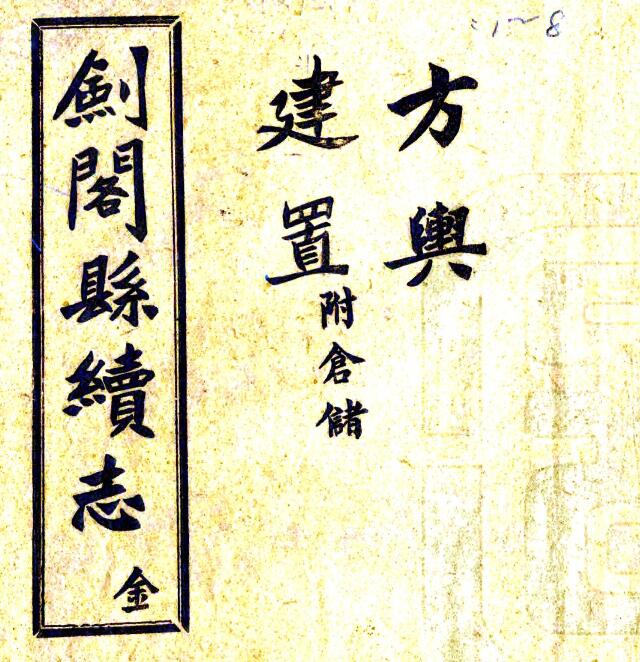 1~8
方輿
建置附倉儲
劍閣縣續志 金